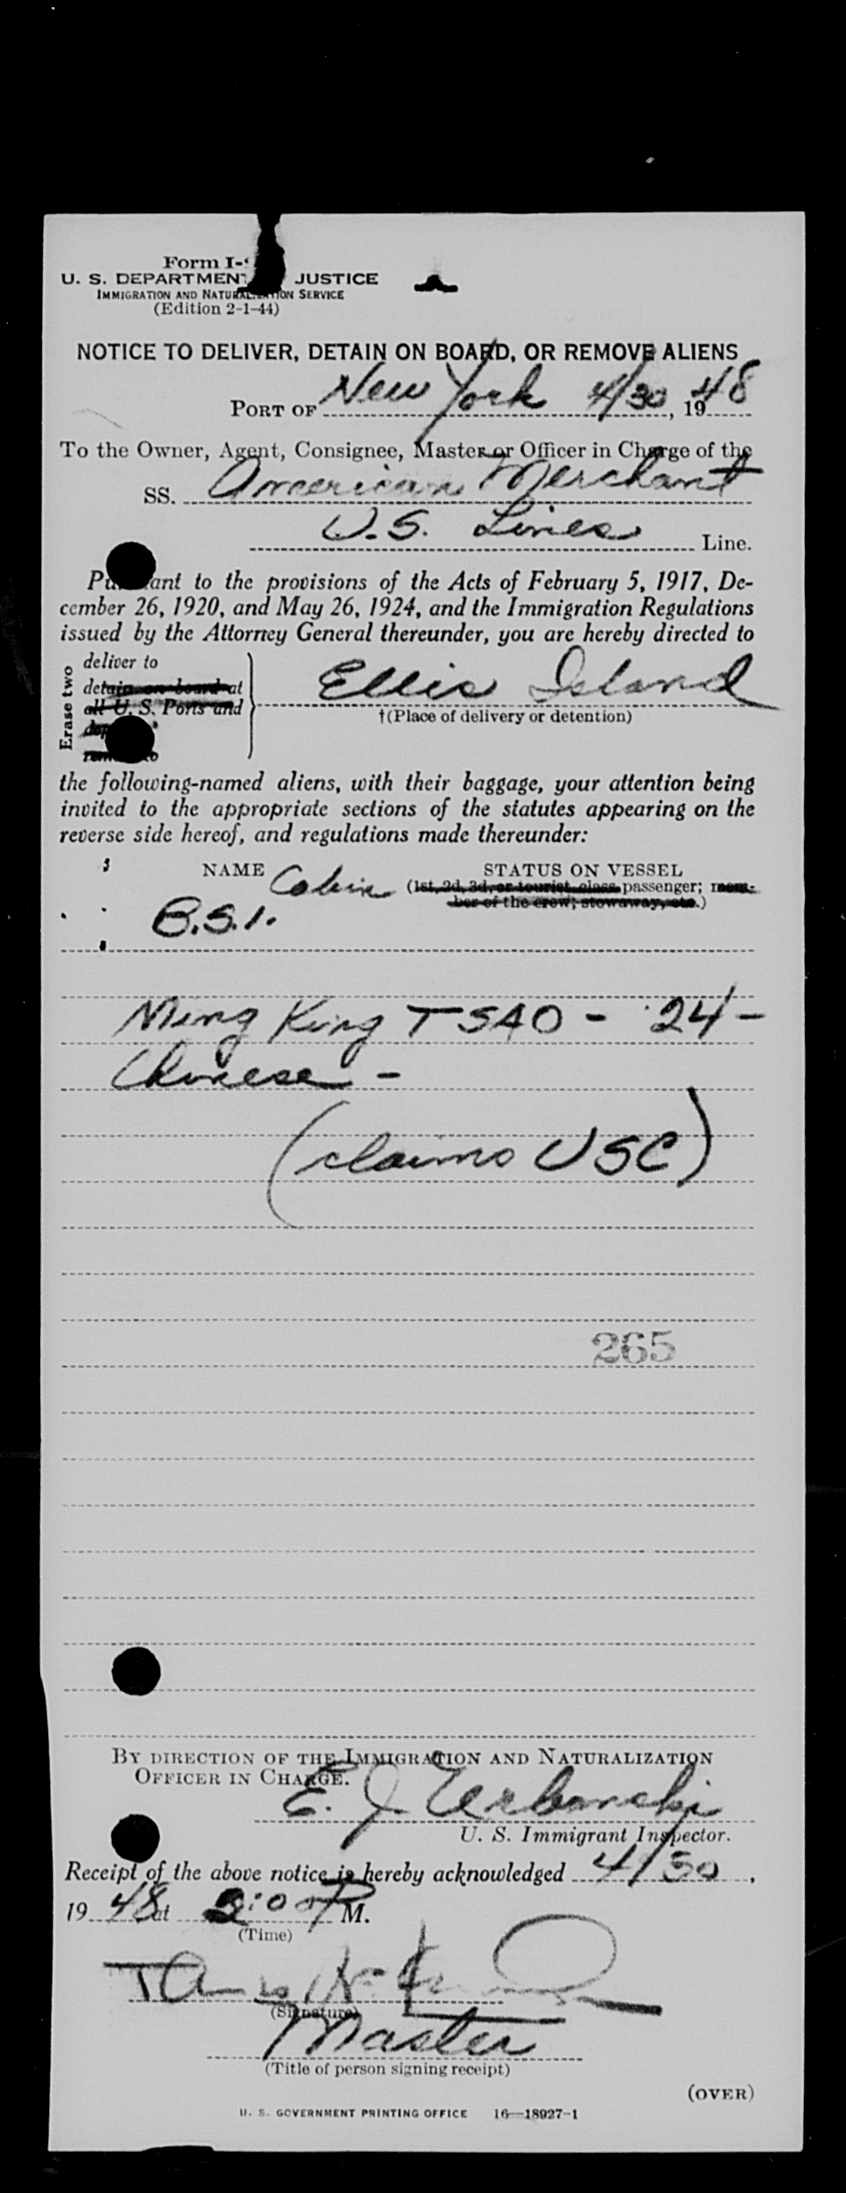 Form I-
U. S. DEPARTMENT JUSTICE
IMMIGRATION AND NATURALIZATION SERVICE
(Edition 2-1-44)
NOTICE TO DELIVER, DETAIN ON BOARD, OR REMOVE ALIENS
PORT OF New York 4/30, 1948
To the Owner, Agent, Consignee, Master or Officer in Charge of the
SS. American Merchant
U.S. Lines Line.
Pursuant to the provisions of the Acts of February 5, 1917, De-
cember 26, 1920, and May 26, 1924, and the Immigration Regulations
issued by the Attorney General thereunder, you are hereby directed to
Erase two
deliver to
detain on board at
all U. S. Ports and
remove to
Ellis Island
†(Place of delivery or detention)
the following-named aliens, with their baggage, your attention being
invited to the appropriate sections of the statutes appearing on the
reverse side hereof, and regulations made thereunder:
NAME Cabin STATUS ON VESSEL
(1st, 2d, 3d, or tourist class passenger; mem-
ber of the crew; stowaway, etc.)
B.S.I.
Ming King TSAO - 24 -
Chinese -
(claims USC)
265
BY DIRECTION OF THE IMMIGRATION AND NATURALIZATION
OFFICER IN CHARGE.
E. J. Urbanski
U. S. Immigrant Inspector.
Receipt of the above notice is hereby acknowledged 4/30,
1948 at 2:00 P M.
(Time)
(Signature)
Master
(Title of person signing receipt)
(OVER)
U. S. GOVERNMENT PRINTING OFFICE 16—18927-1